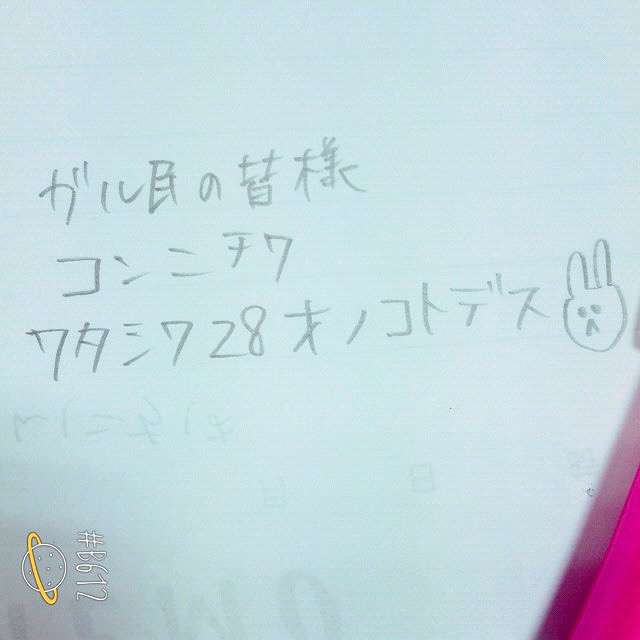 ガル民の皆様
コンニチワ
ワタシワ28オノコトデス
#B612